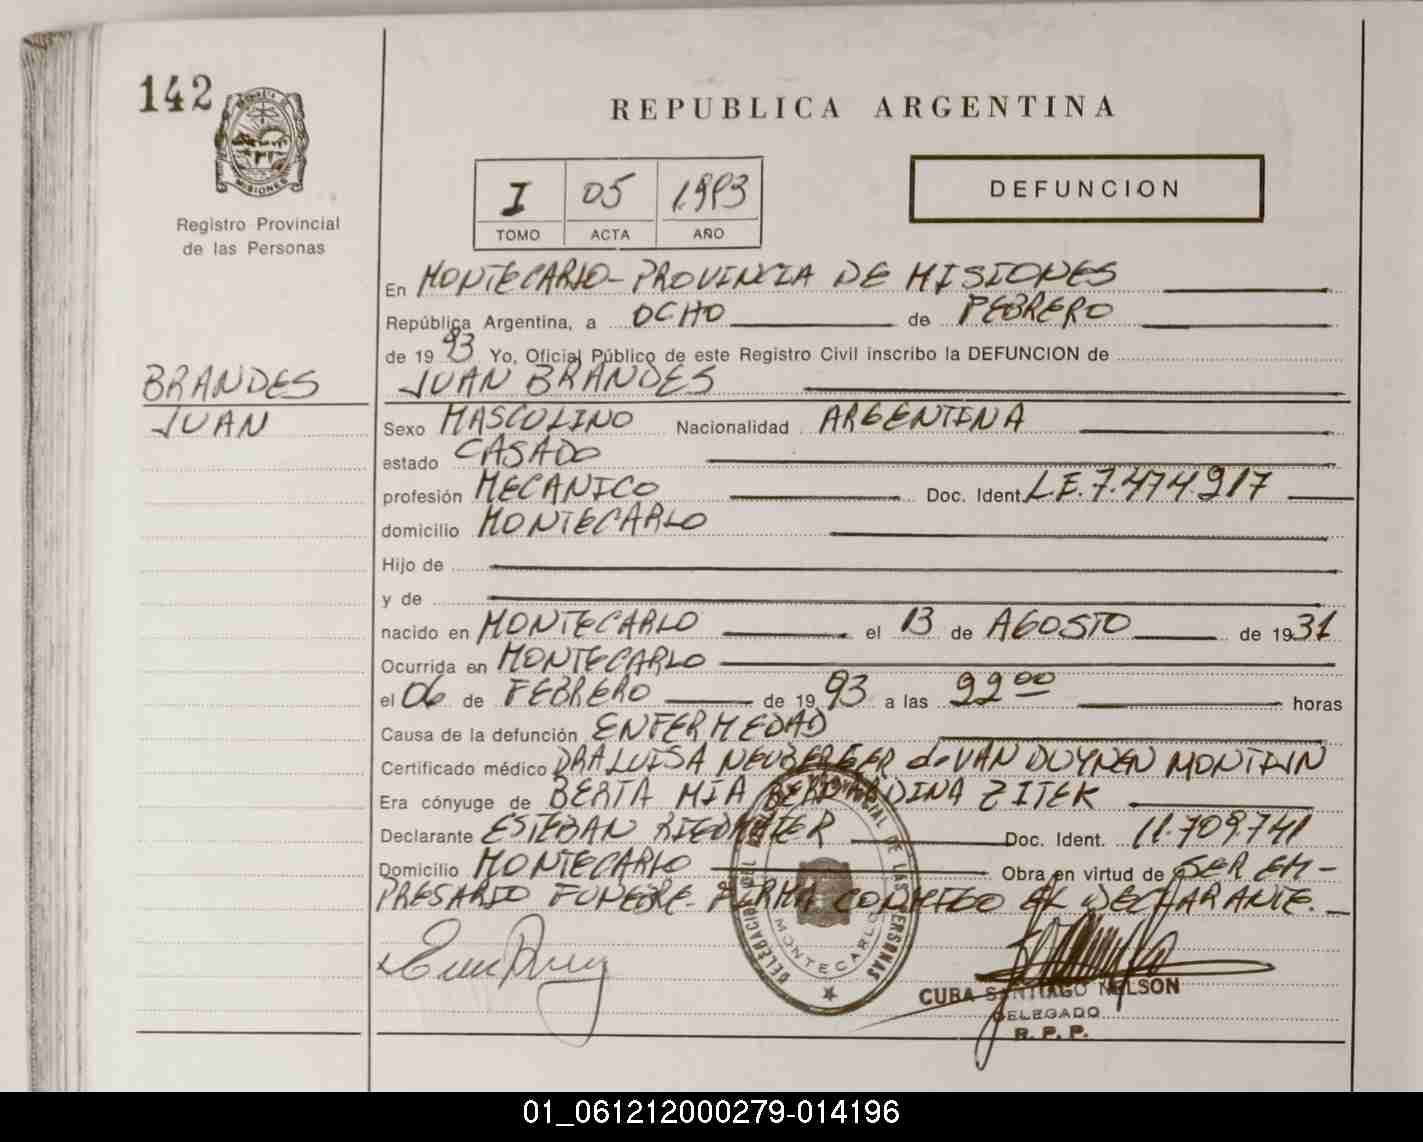 142
REPUBLICA ARGENTINA
MISIONES
I 05 1993
TOMO ACTA AÑO
DEFUNCION
Registro Provincial
de las Personas
En MONTECARLO - PROVINCIA DE MISIONES
República Argentina, a OCHO de FEBRERO
de 19 93 Yo, Oficial Público de este Registro Civil inscribo la DEFUNCION de
BRANDES
JUAN
JUAN BRANDES
Sexo MASCULINO Nacionalidad ARGENTINA
estado CASADO
profesión MECANICO Doc. Ident. L.E. 7.474.917
domicilio MONTECARLO
Hijo de
y de
nacido en MONTECARLO el 13 de AGOSTO de 1931
Ocurrida en MONTECARLO
el 06 de FEBRERO de 19 93 a las 22 00 horas
Causa de la defunción ENFERMEDAD
Certificado médico DRA LUISA NEUBERGER de VAN DUYNEN
Era cónyuge de BERTA MIA BERNARDINA ZITEK
Declarante ESTEBAN RIEDMAIER Doc. Ident. 11.709.741
Domicilio MONTECARLO Obra en virtud de SER EM-
PRESARIO FUNEBRE. FIRMA CONMIGO EL DECLARANTE.
DELEGACION DEL DE LAS PERSONAS
MONTECARLO
CUBA SANTIAGO NELSON
DELEGADO
R. P. P.
01_061212000279-014196